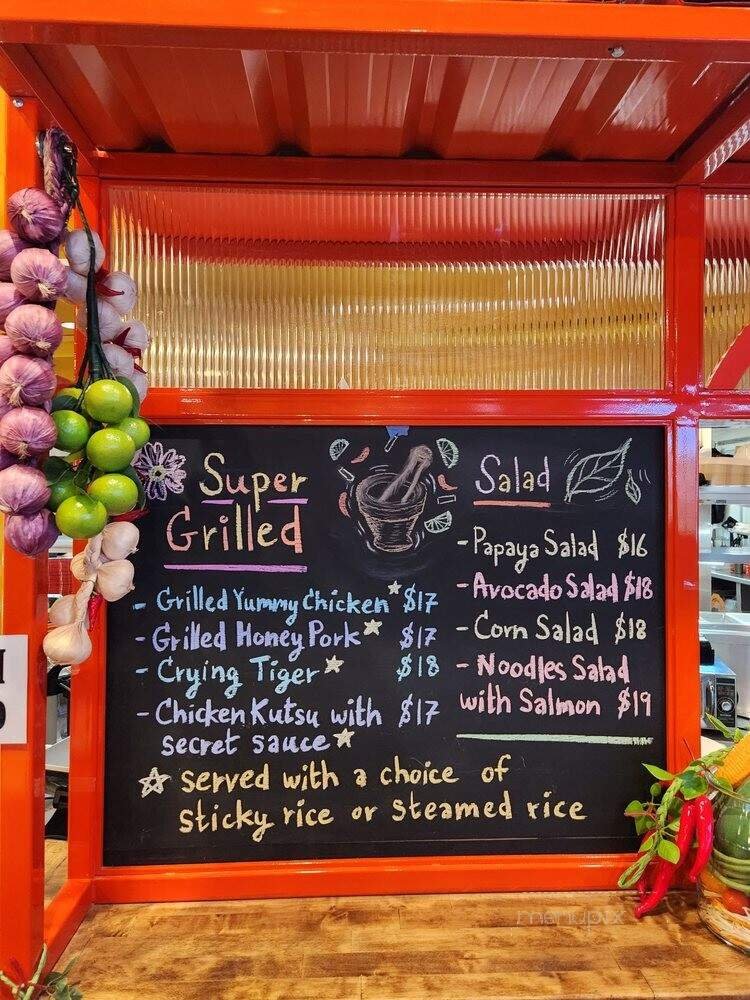 Super
Grilled
- Grilled Yummy Chicken☆ $17
- Grilled Honey Pork☆ $17
- Crying Tiger☆ $18
- Chicken Kutsu with $17
secret sauce☆
☆ served with a choice of
sticky rice or steamed rice
Salad
- Papaya Salad $16
- Avocado Salad $18
- Corn Salad $18
- Noodles Salad
with Salmon $19
menupix